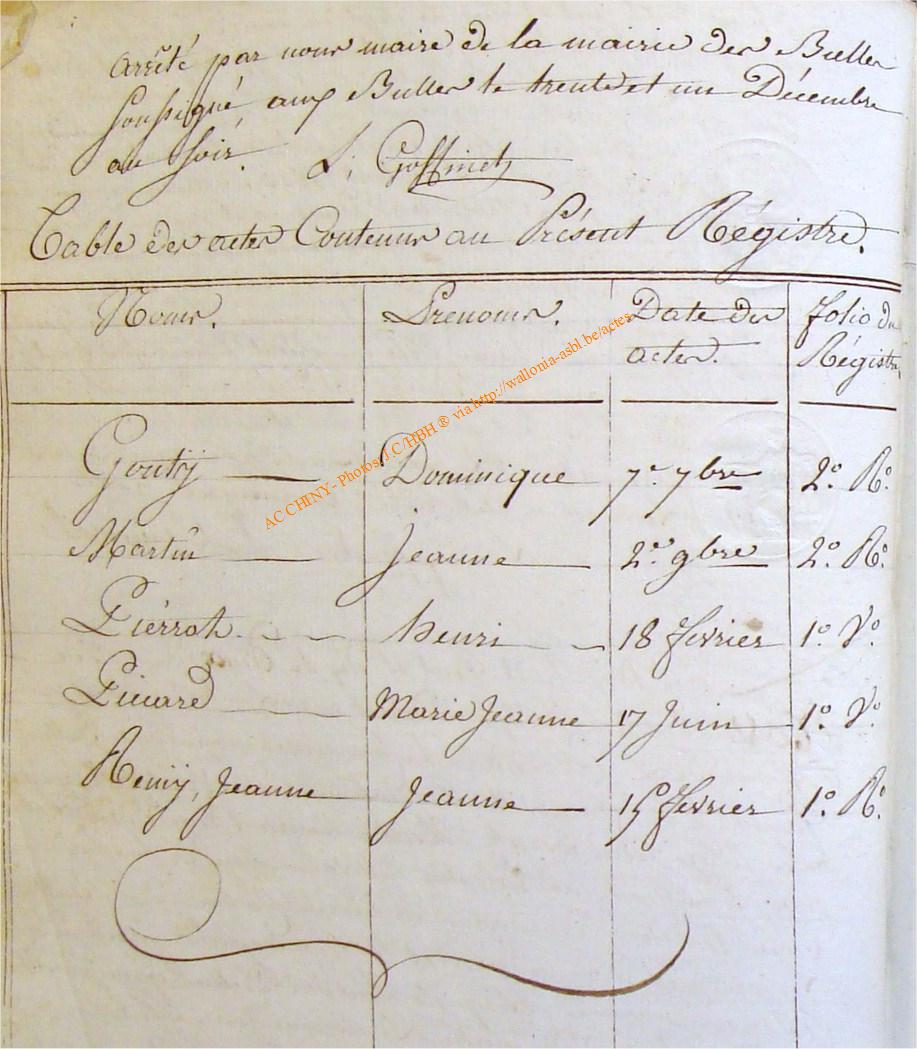 arrêté par nous maire de la mairie des Bulles
soussigné, aux Bulles le trente et un Décembre
au soir. L, Goffinet
Table des actes Contenus au Présent Régistre.
Noms. Prenoms. Date des actes. folio du Régistre,
Goutry Dominique 7e 7bre 2o. Ro.
Martin Jeanne 2e 9bre 2o. Ro.
Piérrot henri 18 fevrier 1o Vo.
Marie Jeanne 17 Juin 1o. Vo.
Remy, Jeanne Jeanne 15 fevrier 1o. Ro.
AC CHINY - Photos J.C/HBH ® via http://wallonia-asbl.be/actes